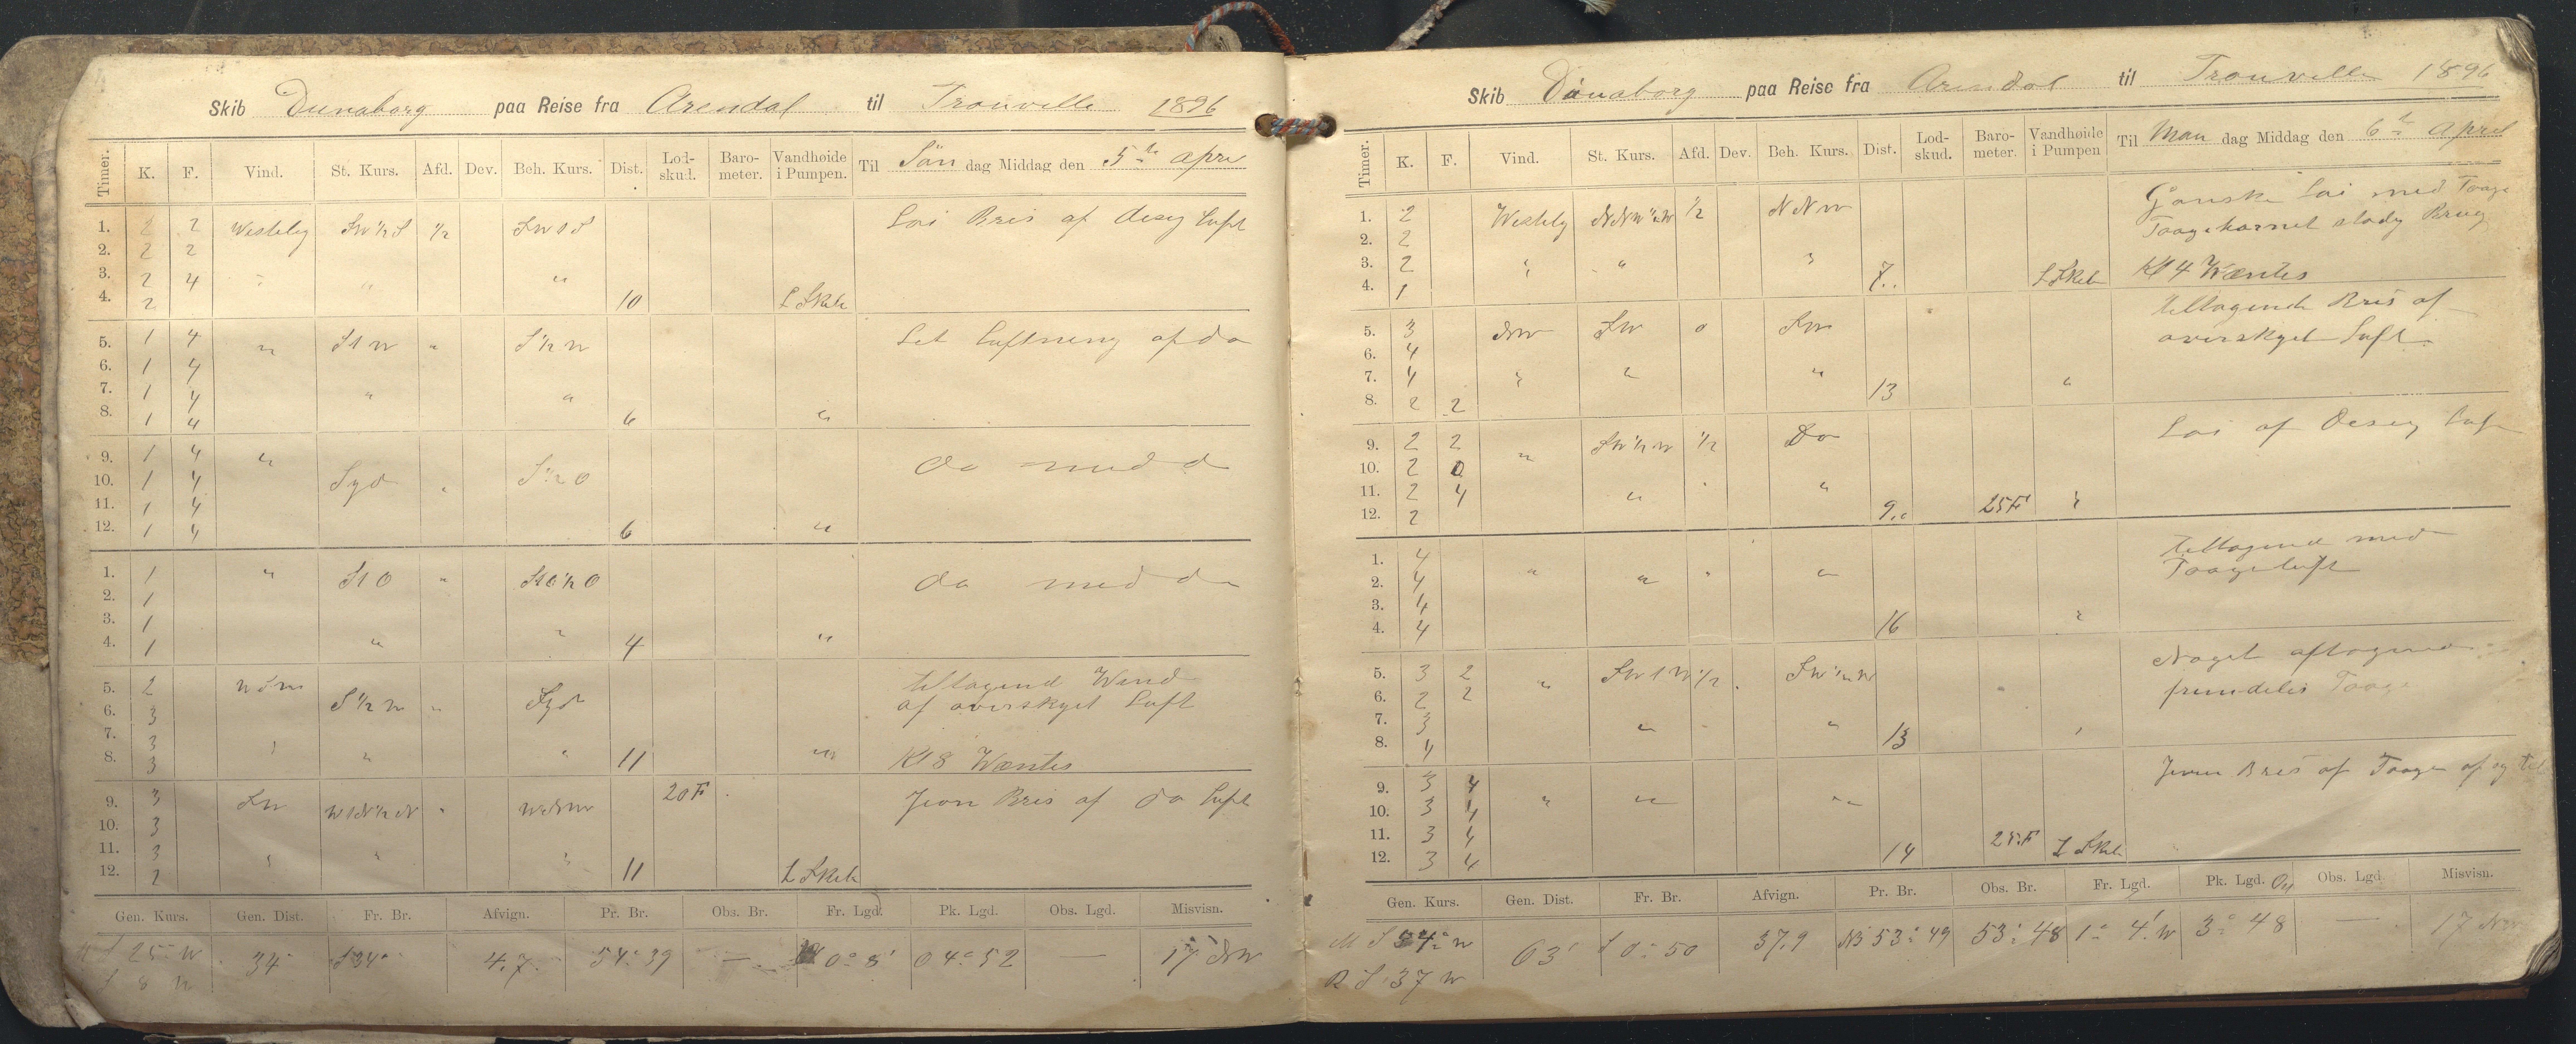 Skib Dunaborg paa Reise fra Arendal til Trouville 1896
Timer. K. F. Vind. St. Kurs. Afd. Dev. Beh. Kurs. Dist. Lod-skud. Baro-meter. Vandhøide i Pumpen. Til Søn dag Middag den 5te Apri
1. 2 2 Westelig SW½S ½ SW1S Lai Bris af disig Luft
2. 2 2
3. 2 4 " " "
4. 2 10 L Skib
5. 1 4 " S1W " S½W Let Luftning af do
6. 1 4
7. 1 4 " "
8. 1 4 6 "
9. 1 4 "
10. 1 4 Syd " S½O do med do
11. 1 4
12. 1 4 6 "
1. 1 " S1O " S1O½O do med do
2. 1
3. 1
4. 1 " " 4 "
5. 2 tiltagend Wind
6. 3 S½W " Syd af overskyet Luft
7. 3
8. 3 " " " 11 " Kl 8 Wæntes
9. 3 SW W1N½N " WNW 20 F Jevn Bris af do Luft
10. 3
11. 3 " " "
12. 2 11 L Skib
Gen. Kurs. Gen. Dist. Fr. Br. Afvign. Pr. Br. Obs. Br. Fr. Lgd. Pk. Lgd. Obs. Lgd. Misvisn.
S 25° W 34 S 34 4.7. 54° 39 — 0° 8' 0 4° 52 — 17 NW
S 8 W
Skib Dünaborg paa Reise fra Arendal til Trouville 1896
Timer. K. F. Vind. St. Kurs. Afd. Dev. Beh. Kurs. Dist. Lod-skud. Baro-meter. Vandhøide i Pumpen Til Man dag Middag den 6te April
1. 2 Westelig NNW½W ½ NNW Ganske Lai med Taage
2. 2 Taagehornet stadig Brug
3. 2 " " "
4. 1 7.. L Skib Kl 4 Wæntes
5. 3 NW SW 0 SW tiltagende Bris af
6. 4 overskyet Luft
7. 4 " " " "
8. 2 2 13
9. 2 2 " SW½W ½ Do Lai af disig Luft
10. 2 0
11. 2 4 " " "
12. 2 9.. 25F "
1. 4 " " " " tiltagend med
2. 4 Taageluft
3. 4
4. 4 16 "
5. 3 2 " SW1W ½ SW½W Noget aftagend
6. 2 2 fremdeles Taage
7. 3 " " "
8. 4 13
9. 3 4 " " " Jevn Bris af Taage af og til
10. 3 4
11. 3 4
12. 3 4 14 25.F L Skib
Gen. Kurs. Gen. Dist. Fr. Br. Afvign. Pr. Br. Obs. Br. Fr. Lgd. Pk. Lgd. Obs. Lgd Misvisn.
M S 34° W 63' S 0° 50 37.9 53° 49 53° 48 1° 4' W 3° 48 — 17 NW
R S 37 W